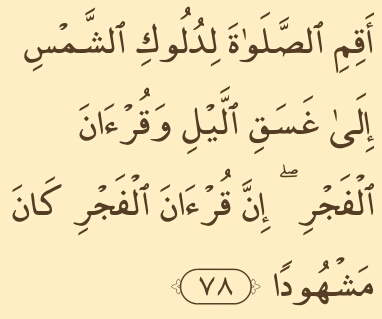 أَقِمِ ٱلصَّلَوٰةَ لِدُلُوكِ ٱلشَّمْسِ
إِلَىٰ غَسَقِ ٱلَّيْلِ وَقُرْءَانَ
ٱلْفَجْرِ ۖ إِنَّ قُرْءَانَ ٱلْفَجْرِ كَانَ
مَشْهُودًا ٧٨